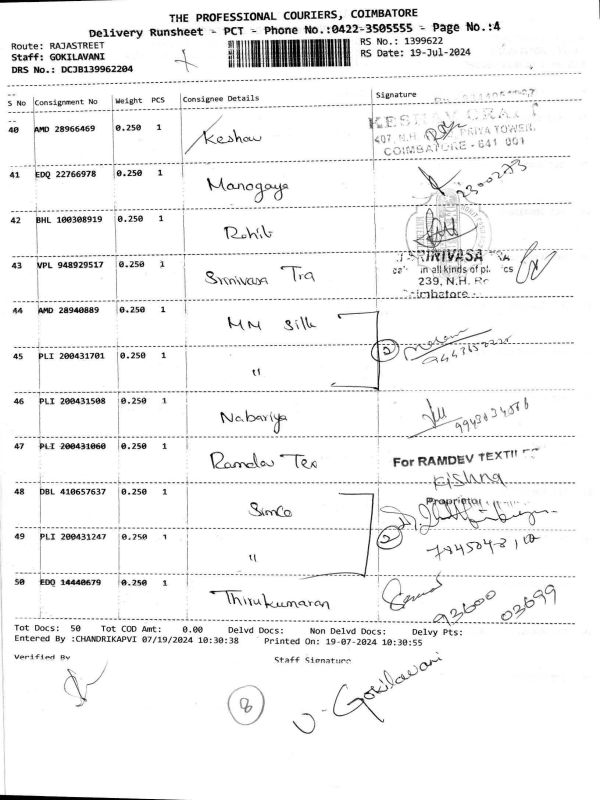 THE PROFESSIONAL COURIERS, COIMBATORE
Delivery Runsheet - PCT - Phone No.:0422-3505555 - Page No.:4
Route: RAJASTREET
Staff: GOKILAVANI
DRS No.: DCJB139962204
RS No.: 1399622
RS Date: 19-Jul-2024
S No Consignment No Weight PCS Consignee Details Signature
40 AMD 28966469 0.250 1 Keshav
KESHAV
407, N.H. PRIYA TOWER,
COIMBATORE - 641 001
41 EDQ 22766978 0.250 1 Manogaya
2300273
42 BHL 100308919 0.250 1 Rohit
43 VPL 948929517 0.250 1 Srinivasa Tra
SRINIVASA
in all kinds of
239, N.H.
Coimbatore
44 AMD 28940889 0.250 1 MM Silk
45 PLI 200431701 0.250 1 "
2
46 PLI 200431508 0.250 1 Nabariya
47 PLI 200431060 0.250 1 Ramdev Tex
For RAMDEV TEXTILES
Krishna
Proprietor
48 DBL 410657637 0.250 1 Simco
49 PLI 200431247 0.250 1 "
2
50 EDQ 14440679 0.250 1 Thirukumaran
93600 03699
Tot Docs: 50 Tot COD Amt: 0.00 Delvd Docs: Non Delvd Docs: Delvy Pts:
Entered By :CHANDRIKAPVI 07/19/2024 10:30:38 Printed On: 19-07-2024 10:30:55
Verified By Staff Signature
8
V. Gokilavani